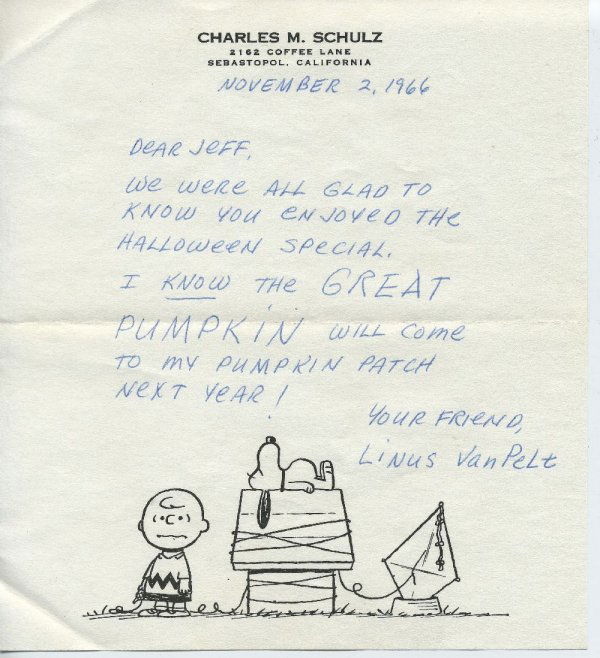 CHARLES M. SCHULZ
2162 COFFEE LANE
SEBASTOPOL, CALIFORNIA
NOVEMBER 2, 1966
DEAR JEFF,
WE WERE ALL GLAD TO
KNOW YOU ENJOYED THE
HALLOWEEN SPECIAL.
I KNOW THE GREAT
PUMPKIN WILL COME
TO MY PUMPKIN PATCH
NEXT YEAR!
YOUR FRIEND,
LINUS VAN PELT